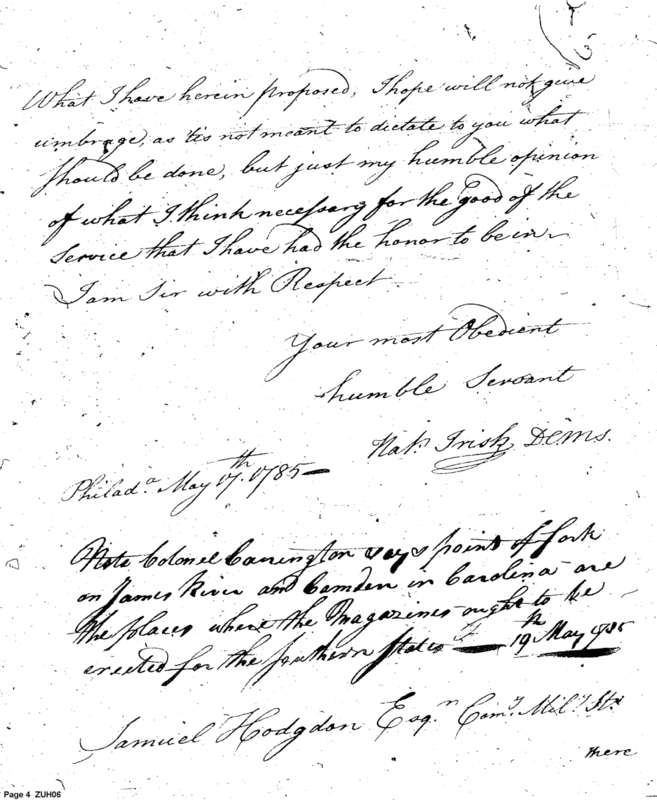 What I have herein proposed, I hope will not give
umbrage, as 'tis not meant to dictate to you what
should be done, but just my humble opinion
of what I think necessary for the good of the
Service that I have had the honor to be in
I am Sir with Respect
Your most Obedient
humble Servant
Nat. Irish, DCMS.
Philada. May 17th. 1785
Note Colonel Carrington says point of fork
on James River and Camden in Carolina are
the places where the Magazines ought to be
erected for the southern States — 19th May 1785
Samuel Hodgdon Esqr. Comy. Mily.
there
Page 4 ZUH06